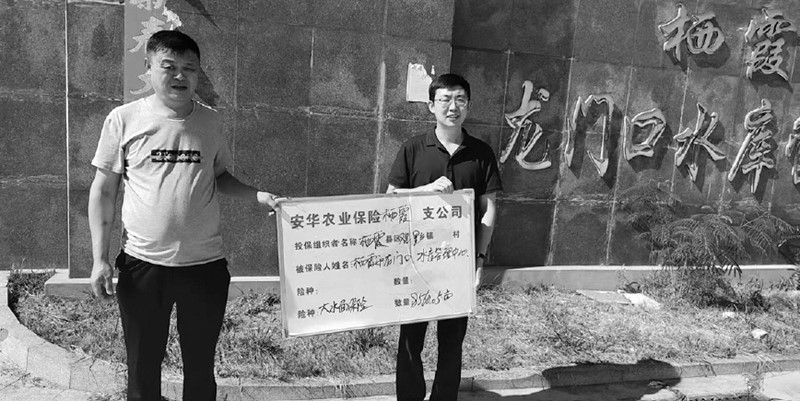 栖霞
龙门口水库
安华农业保险栖霞支公司
投保组织者名称:栖霞县 乡镇 村
被保险人姓名:栖霞市龙门口水库管理中心
险种: 数量:
险种:大水面保险 数量: